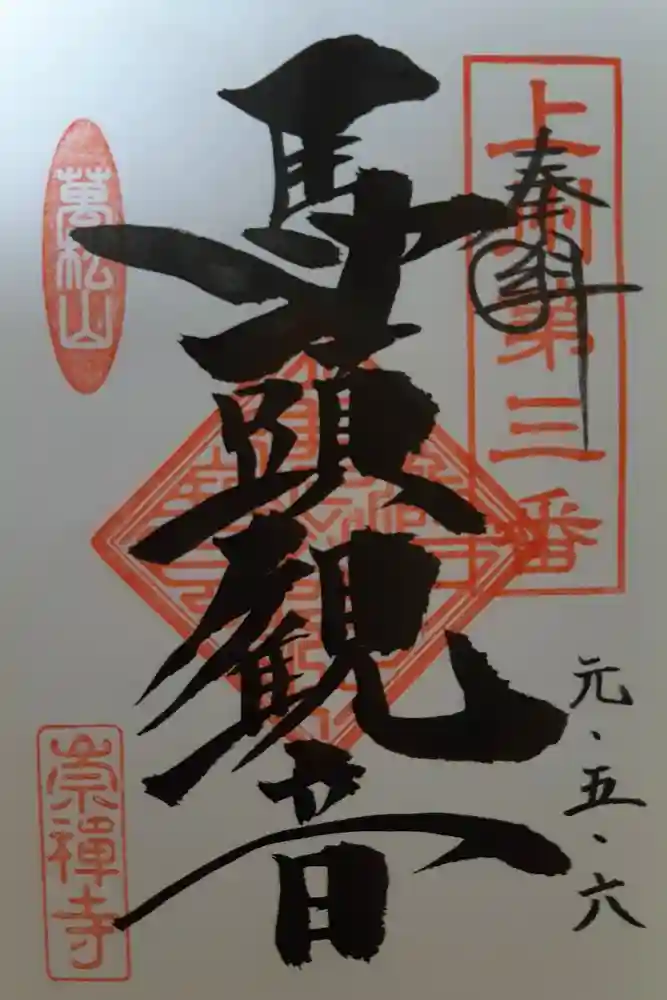 上州第三番
奉拝
元、五、六
馬頭観音
萬松山
崇禅寺